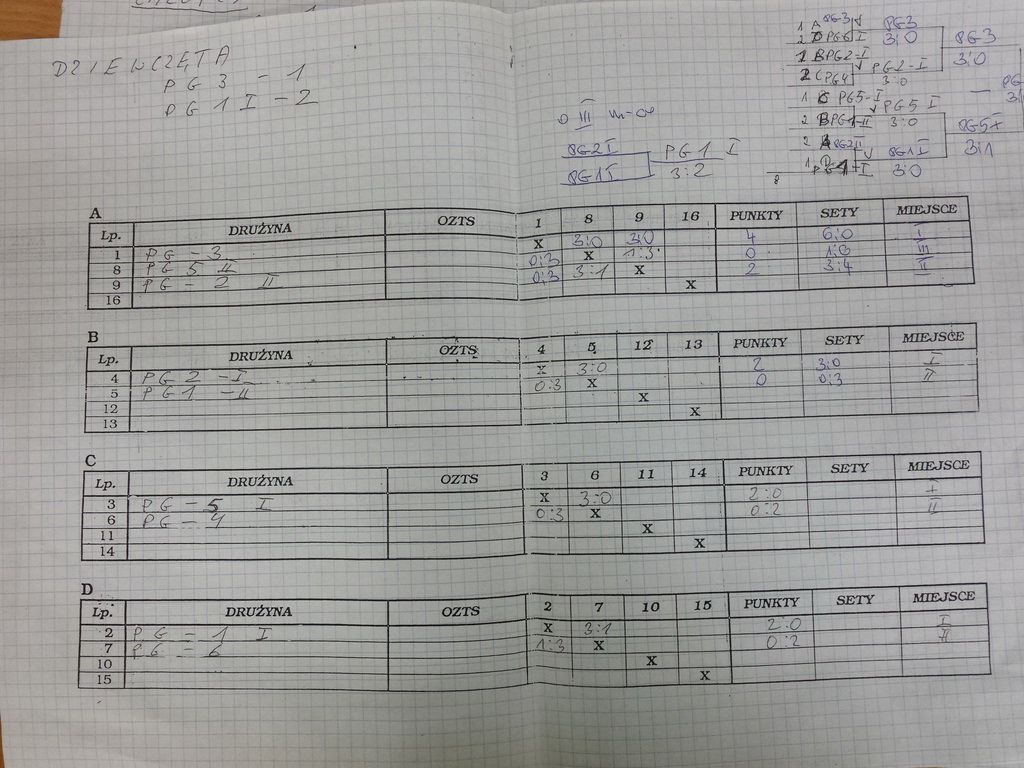 DZIEWCZĘTA
PG 3 - 1
PG 1 I - 2
1 A PG3 PG3
2 D PG6 I 3:0 PG3
1 B PG2-I 3:0
2 C PG4 PG2-I
3:0
1 C PG5-I PG5 I
2 B PG1-II 3:0 PG5 I
2 A PG2 II PG1 I 3:1
1 D PG1-I 3:0
o III m-ce
PG2 I PG1 I
PG1 I 3:2
A
Lp. DRUŻYNA OZTS 1 8 9 16 PUNKTY SETY MIEJSCE
1 PG - 3 X 3:0 3:0 4 6:0 I
8 PG 5 II 0:3 X 1:3 0 1:6 III
9 PG - 2 II 0:3 3:1 X 2 3:4 II
16 X
B
Lp. DRUŻYNA OZTS 4 5 12 13 PUNKTY SETY MIEJSCE
4 PG 2 - I X 3:0 2 3:0 I
5 PG 1 - II 0:3 X 0 0:3 II
12 X
13 X
C
Lp. DRUŻYNA OZTS 3 6 11 14 PUNKTY SETY MIEJSCE
3 PG - 5 I X 3:0 2:0 I
6 PG - 4 0:3 X 0:2 II
11 X
14 X
D
Lp. DRUŻYNA OZTS 2 7 10 15 PUNKTY SETY MIEJSCE
2 PG - 1 I X 3:1 2:0 I
7 PG - 6 1:3 X 0:2 II
10 X
15 X